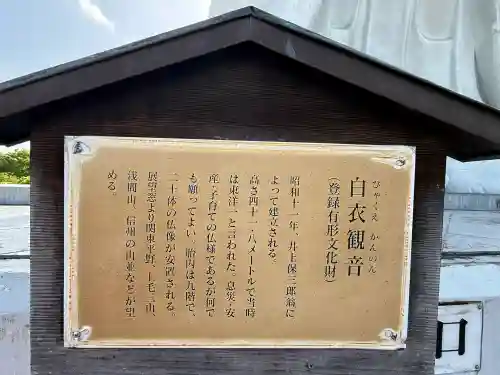 びゃくえ かんのん
白衣観音
（登録有形文化財）
昭和十一年、井上保三郎翁に
よって建立される。
高さ四十一・八メートルで当時
は東洋一と言われた。息災・安
産・子育ての仏様であるが何で
も願ってよい。胎内は九階で、
二十体の仏像が安置される。
展望窓より関東平野、上毛三山、
浅間山、信州の山並などが望
める。
口